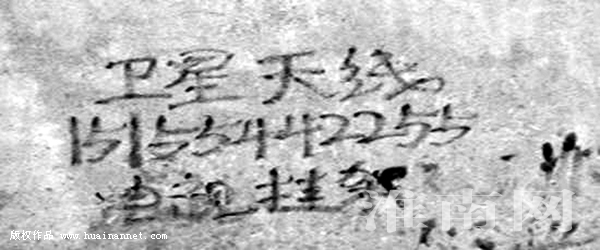 卫星天线
15155442255
电视挂架
淮南网
版权作品 "www.huainannet.com"